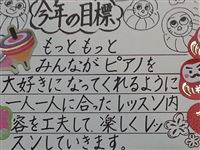 今年の目標
もっともっと
みんながピアノを
大好きになってくれるように
一人一人に合ったレッスン内
容を工夫して、楽しくレッ
スンしていきます。